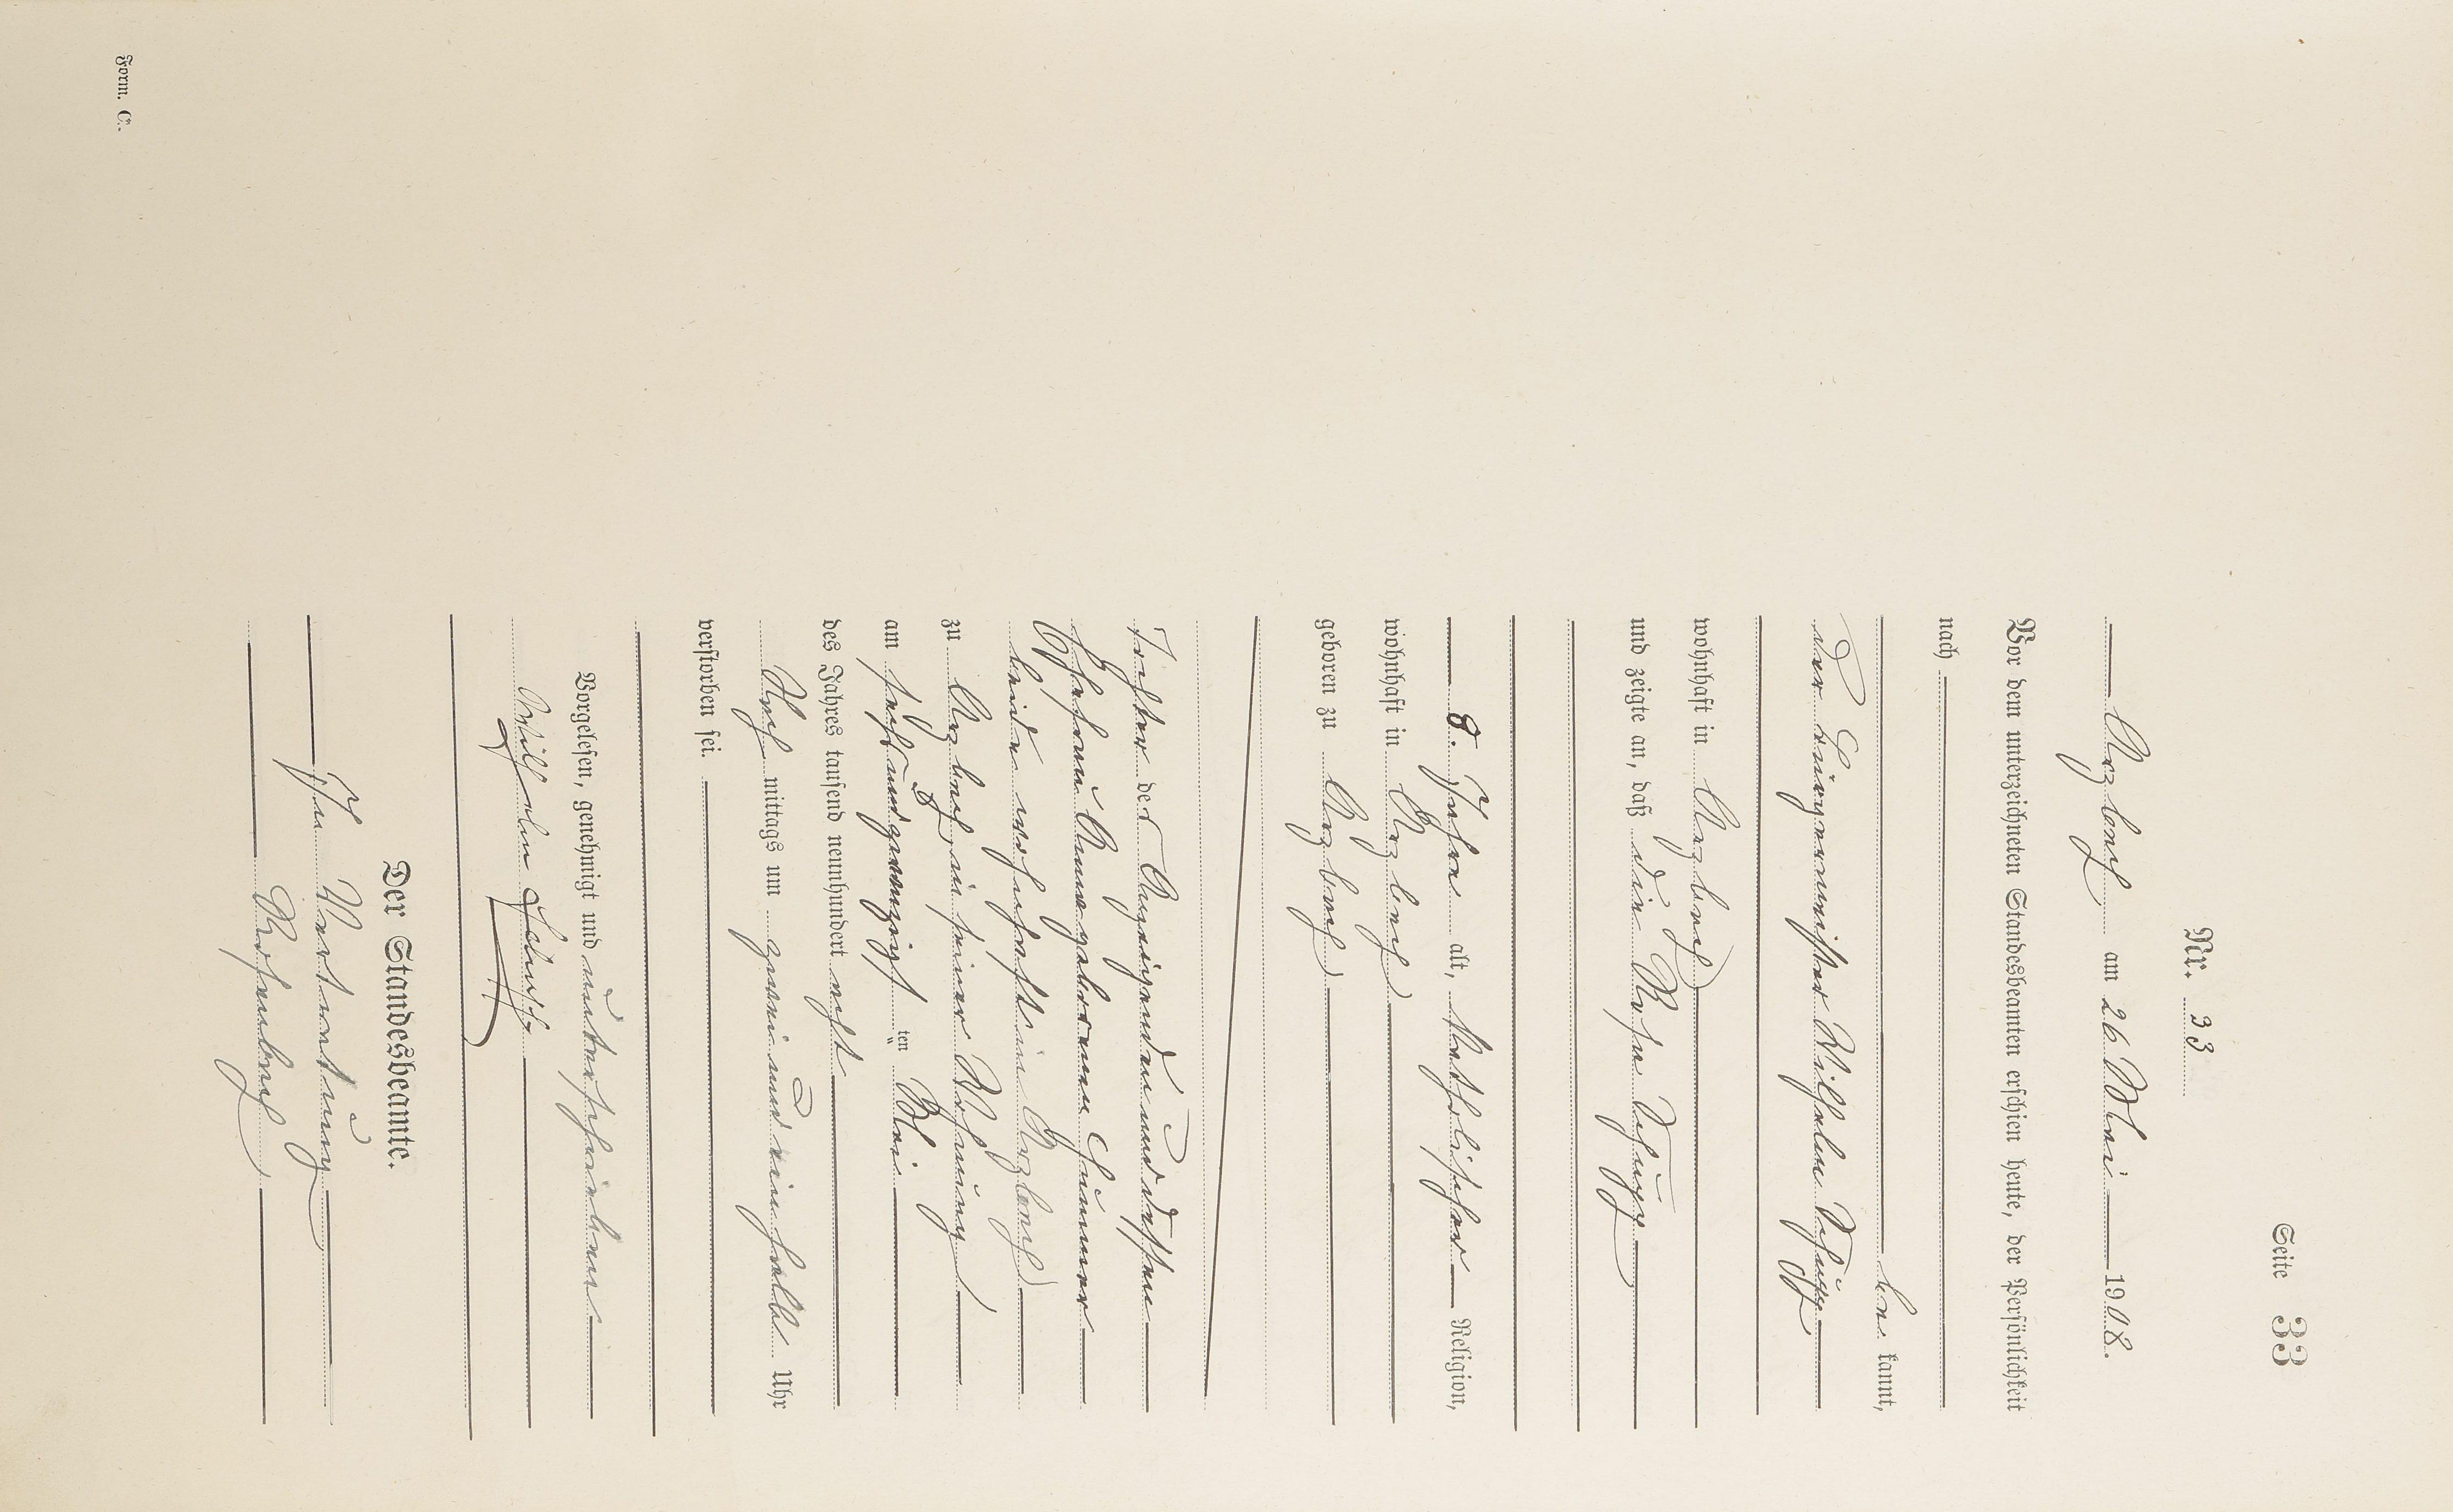 Seite 33
Nr. 33
Arzbach am 26 Mai 1908.
Vor dem unterzeichneten Standesbeamten erschien heute, der Persönlichkeit
nach
be kannt,
der Bürgermeister Wilhelm
wohnhaft in Arzbach
und zeigte an, daß die Rosa
8. Jahre alt, katholischer Religion,
wohnhaft in Arzbach
geboren zu Arzbach
Tochter des Anzeigenden und dessen
Ehefrau Anna geborenen
beide wohnhaft in Arzbach
zu Arzbach in seiner Wohnung
am sechsundzwanzigsten ten Mai
des Jahres tausend neunhundert acht
Nach mittags um zwei und ein halb Uhr
verstorben sei.
Vorgelesen, genehmigt und unterschrieben
Wilhelm
Der Standesbeamte.
In Vertretung